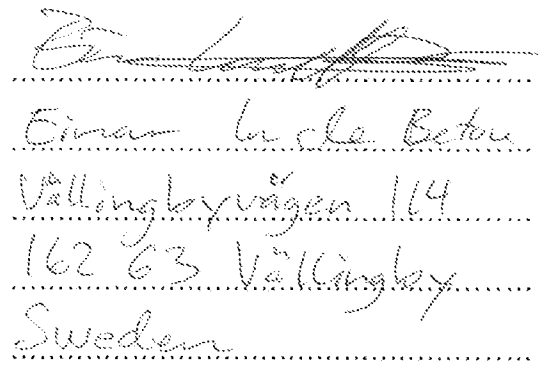 Einar de Betou
Vällingbyvägen 114
162 63 Vällingby
Sweden